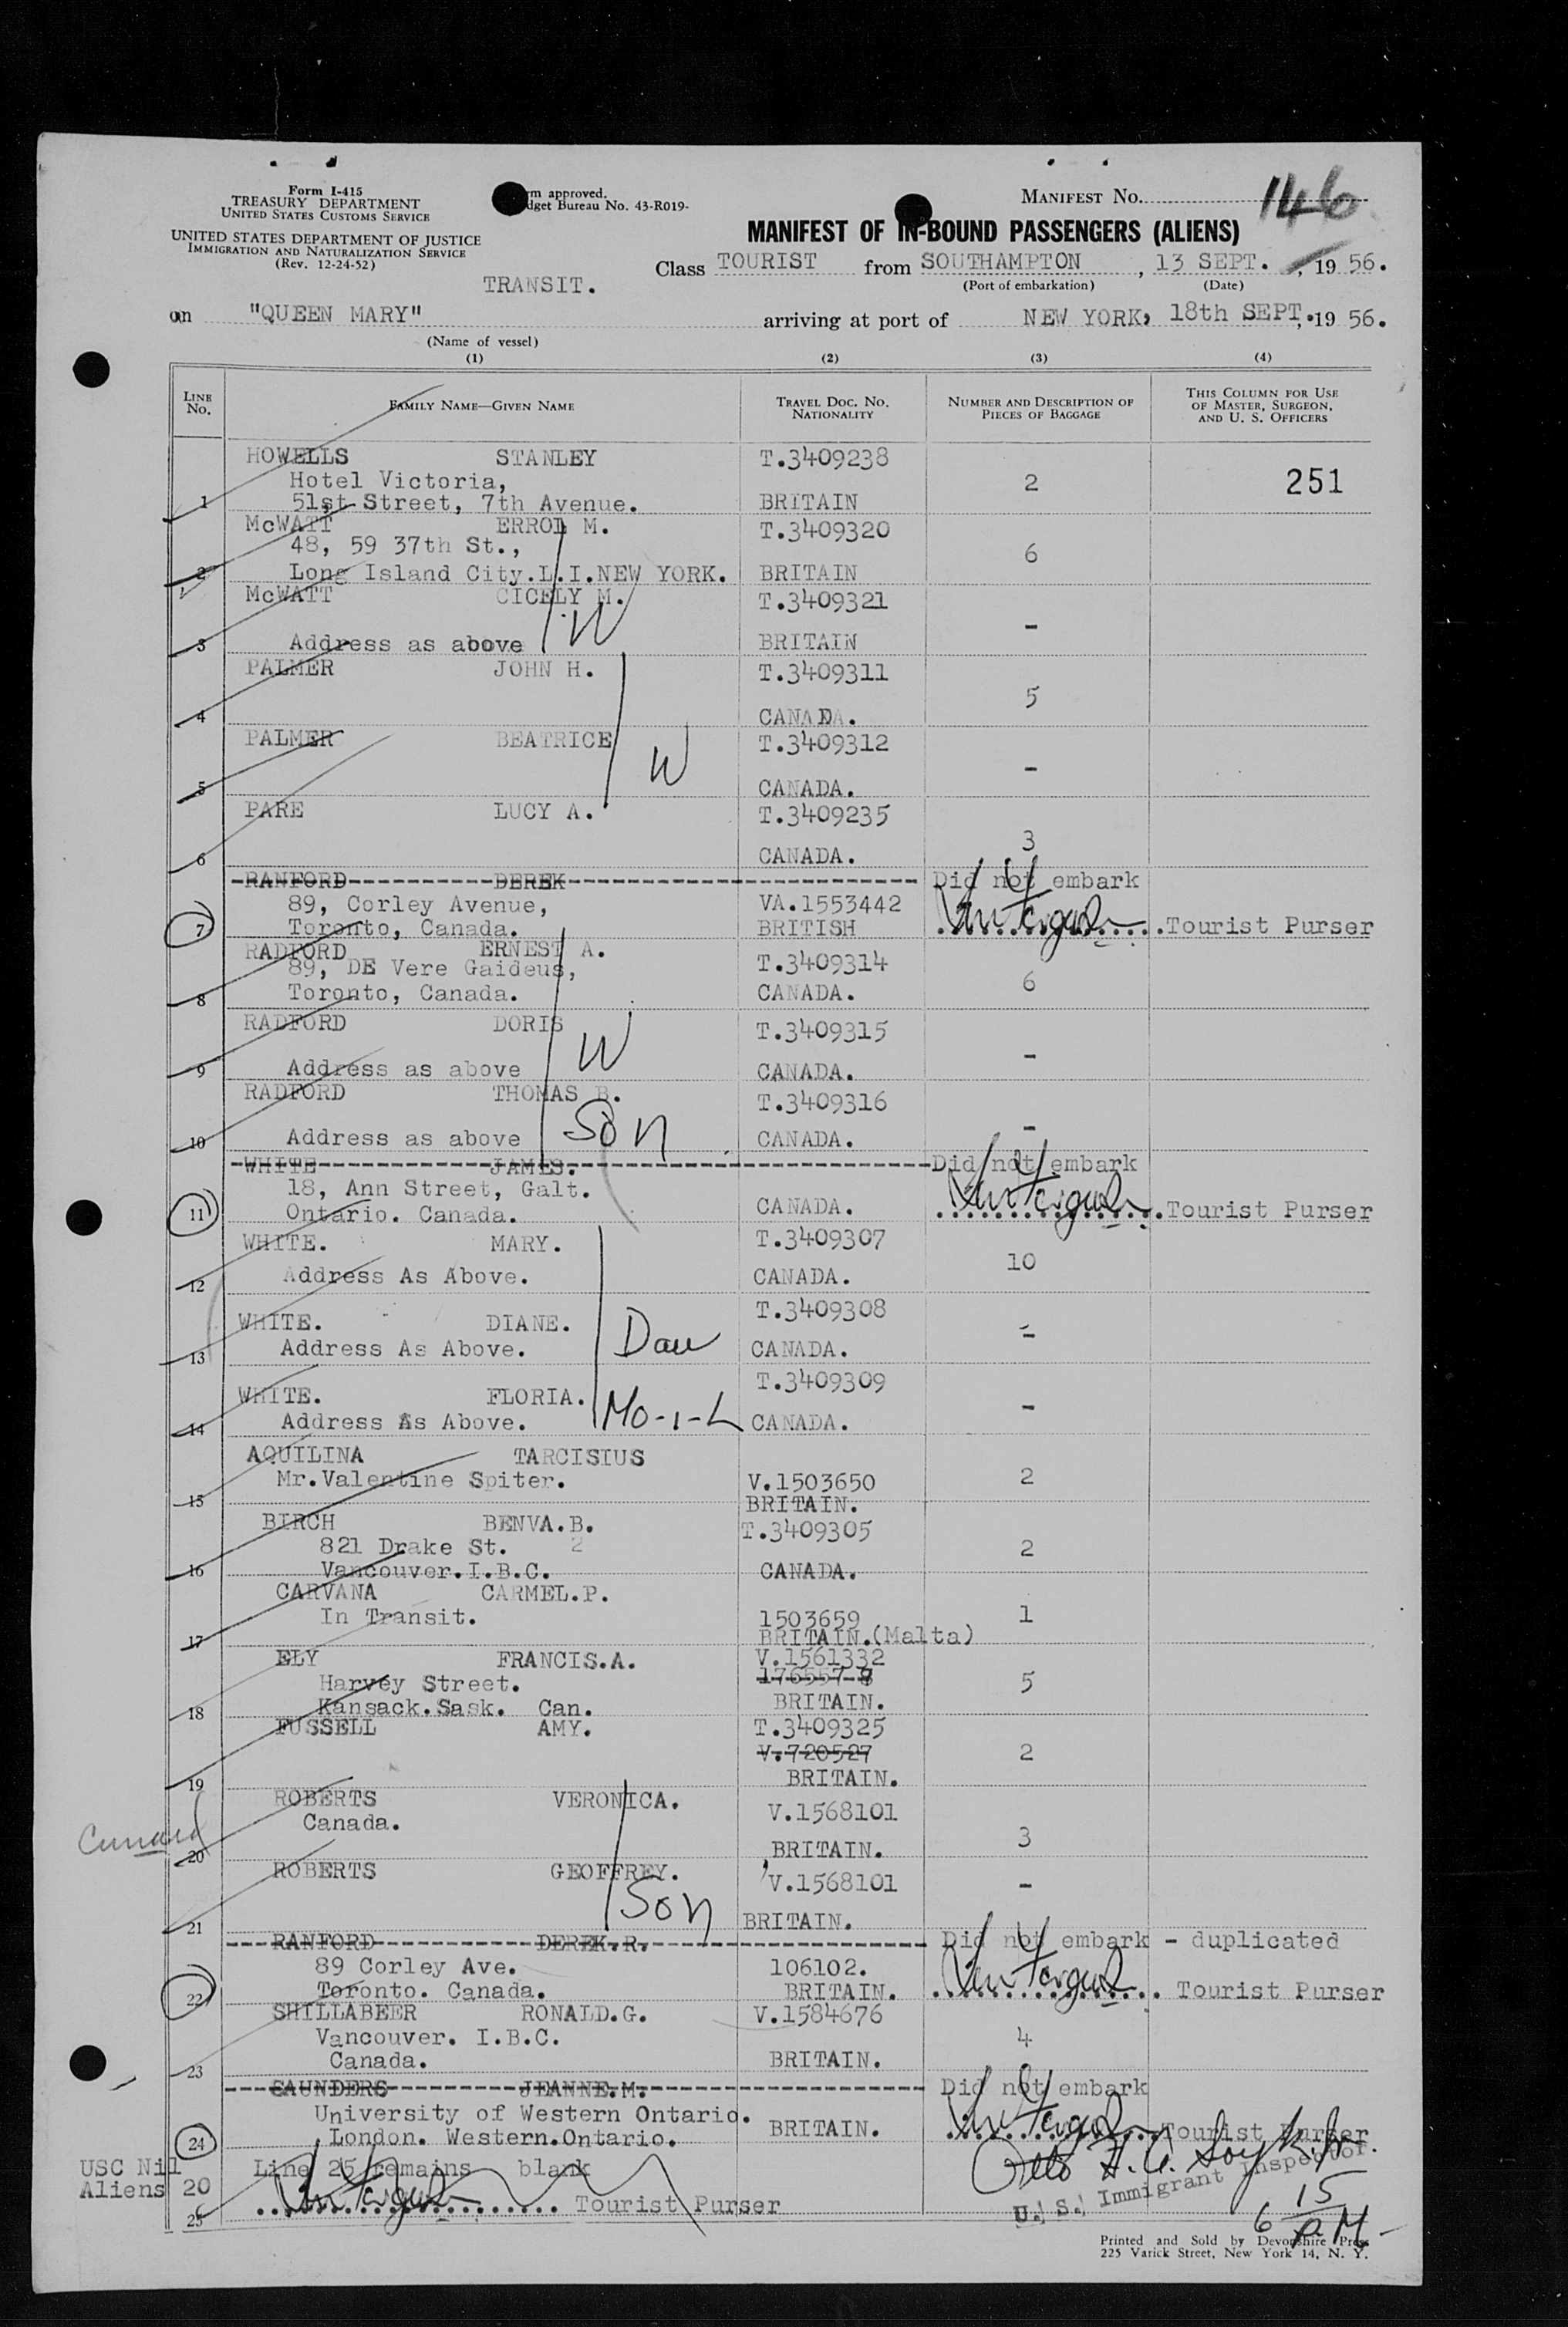 Form I-415
TREASURY DEPARTMENT
UNITED STATES CUSTOMS SERVICE
UNITED STATES DEPARTMENT OF JUSTICE
IMMIGRATION AND NATURALIZATION SERVICE
(Rev. 12-24-52)
m approved.
dget Bureau No. 43-R019-
MANIFEST No. 146
MANIFEST OF IN-BOUND PASSENGERS (ALIENS)
TRANSIT.
Class TOURIST from SOUTHAMPTON, 13 SEPT., 1956.
(Port of embarkation) (Date)
on "QUEEN MARY" arriving at port of NEW YORK, 18th SEPT., 1956.
(Name of vessel)
(1) (2) (3) (4)
LINE No. FAMILY NAME—GIVEN NAME TRAVEL DOC. No. NATIONALITY NUMBER AND DESCRIPTION OF PIECES OF BAGGAGE THIS COLUMN FOR USE OF MASTER, SURGEON, AND U. S. OFFICERS
HOWELLS STANLEY T.3409238
Hotel Victoria, 2 251
1 51st Street, 7th Avenue. BRITAIN
McWATT ERROL M. T.3409320
48, 59 37th St., 6
2 Long Island City.L.I.NEW YORK. BRITAIN
McWATT CICELY M. T.3409321
W -
3 Address as above BRITAIN
PALMER JOHN H. T.3409311
5
4 CANADA.
PALMER BEATRICE T.3409312
W -
5 CANADA.
PARE LUCY A. T.3409235
3
6 CANADA.
RANFORD DEREK Did not embark
89, Corley Avenue, VA.1553442
7 Toronto, Canada. BRITISH Tourist Purser
RADFORD ERNEST A.
89, DE Vere Gaideus, T.3409314
8 Toronto, Canada. CANADA. 6
RADFORD DORIS T.3409315
W -
9 Address as above CANADA.
RADFORD THOMAS B. T.3409316
Son -
10 Address as above CANADA.
WHITE JAMES. Did not embark
18, Ann Street, Galt.
11 Ontario. Canada. CANADA. Tourist Purser
WHITE. MARY. T.3409307
10
12 Address As Above. CANADA.
T.3409308
WHITE. DIANE. -
13 Address As Above. Dau CANADA.
T.3409309
WHITE. FLORIA. -
14 Address As Above. Mo-i-L CANADA.
AQUILINA TARCISIUS
Mr.Valentine Spiter. V.1503650 2
15 BRITAIN.
BIRCH BENVA.B. T.3409305
821 Drake St. 2 2
16 Vancouver.I.B.C. CANADA.
CARVANA CARMEL.P.
In Transit. 1503659 1
17 BRITAIN.(Malta)
ELY FRANCIS.A. V.1561332
Harvey Street. 176557 8 5
18 Kansack.Sask. Can. BRITAIN.
FUSSELL AMY. T.3409325
V.720527 2
19 BRITAIN.
ROBERTS VERONICA. V.1568101
Canada. 3
Cunard 20 BRITAIN.
ROBERTS GEOFFREY. V.1568101
Son -
21 BRITAIN.
RANFORD DEREK.R. Did not embark - duplicated
89 Corley Ave. 106102.
22 Toronto. Canada. BRITAIN. Tourist Purser
SHILLABEER RONALD.G. V.1584676
Vancouver. I.B.C. 4
23 Canada. BRITAIN.
SAUNDERS JEANNE.M. Did not embark
University of Western Ontario. BRITAIN.
24 London. Western.Ontario. Tourist Purser
USC Nil Line 25 remains blank
Aliens 20 Tourist Purser
25 U. S. Immigrant Inspector.
6 15 P.M.
Printed and Sold by Devonshire Press
225 Varick Street, New York 14, N. Y.